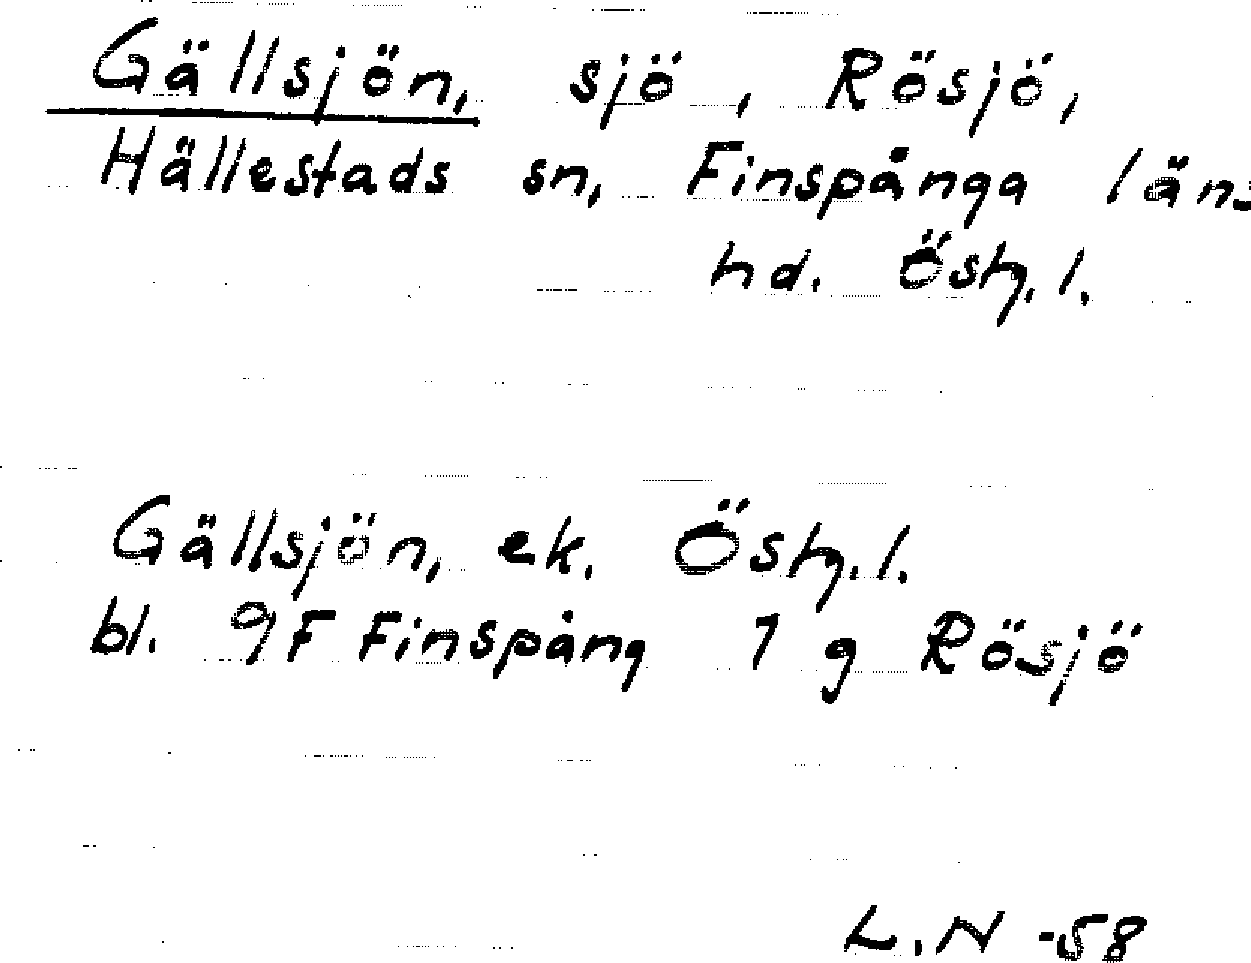 Gällsjön, sjö, Rösjö,
Hällestads sn, Finspånga läns
hd. Östg. l.
Gällsjön, ek. Östg. l.
bl. 9F Finspång 7 g Rösjö
L.N -58